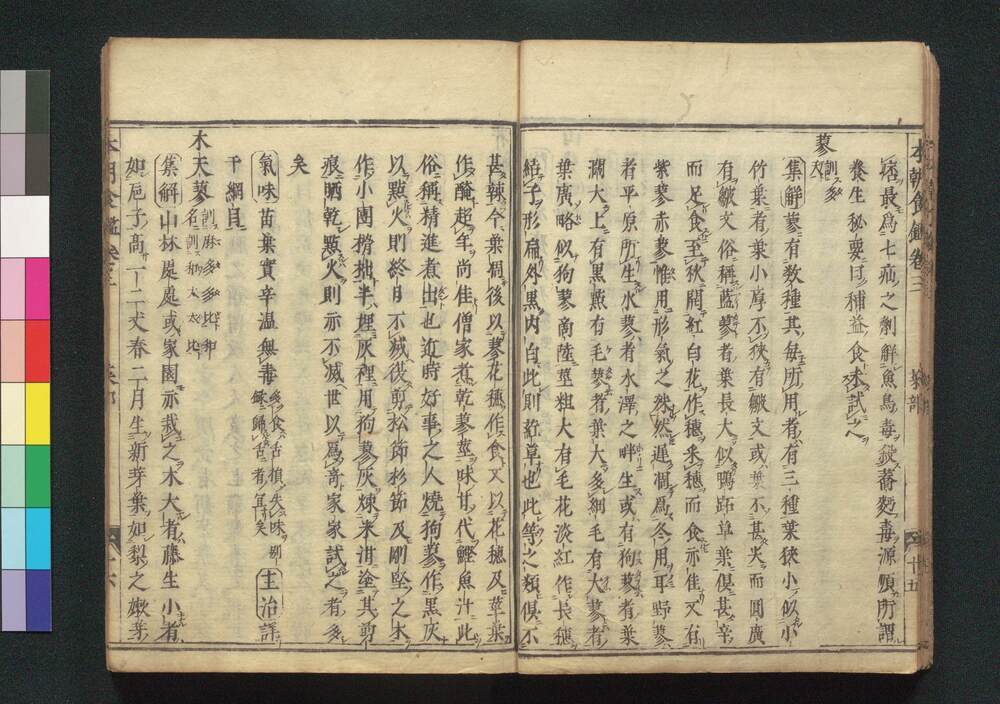 本朝食鑑卷三 菜部 十五
痃最爲七疝之劑解魚鳥毒殺蕎麪毒源順所謂
養生秘要曰補益食未試之
蓼 訓多天
集解蓼有数種其毎所用者有三種葉狹小似小
竹葉者葉小厚不狹有皺文或葉不甚尖而圓廣
有皺文俗稱藍蓼者葉長大似鴨跖草葉倶甚辛
而足食至秋開紅白花作穗采穗而食亦佳又有
紫蓼赤蓼惟用形氣之然然遲凋爲冬用耳野蓼
者平原所生水蓼者水澤之畔生或有狗蓼者葉
濶大上有黒㸃有毛蓼者葉大多細毛有大蓼者
葉廣略似狗蓼商陸莖粗大有毛花淡紅作長穗
結子形扁外黒内白此則葒草也此等之類倶不
甚辣今葉凋後以蓼花穗作食又以花穗及莖葉
作醃超年尚佳僧家煮乾蓼莖味甘代鰹魚汁此
俗稱精進煮出也近時好事之人燒狗蓼作黒灰
以㸃火則終月不滅復剪松節杉節及剛堅之木
作小團撱拙半埋灰裡用狗蓼灰煉米泔塗其剪
痕晒乾㸃火則亦不滅世以爲奇家家試之者多
矣
氣味苗葉實辛温無毒 多食舌損失味 主治詳
于綱目
木天蓼 訓麻多多比
集解山林處處或家園亦栽之木大者藤生小者
如巵子高一二丈春二月生新芽葉如梨之嫩芽
本朝食鑑卷三 菜部 十六